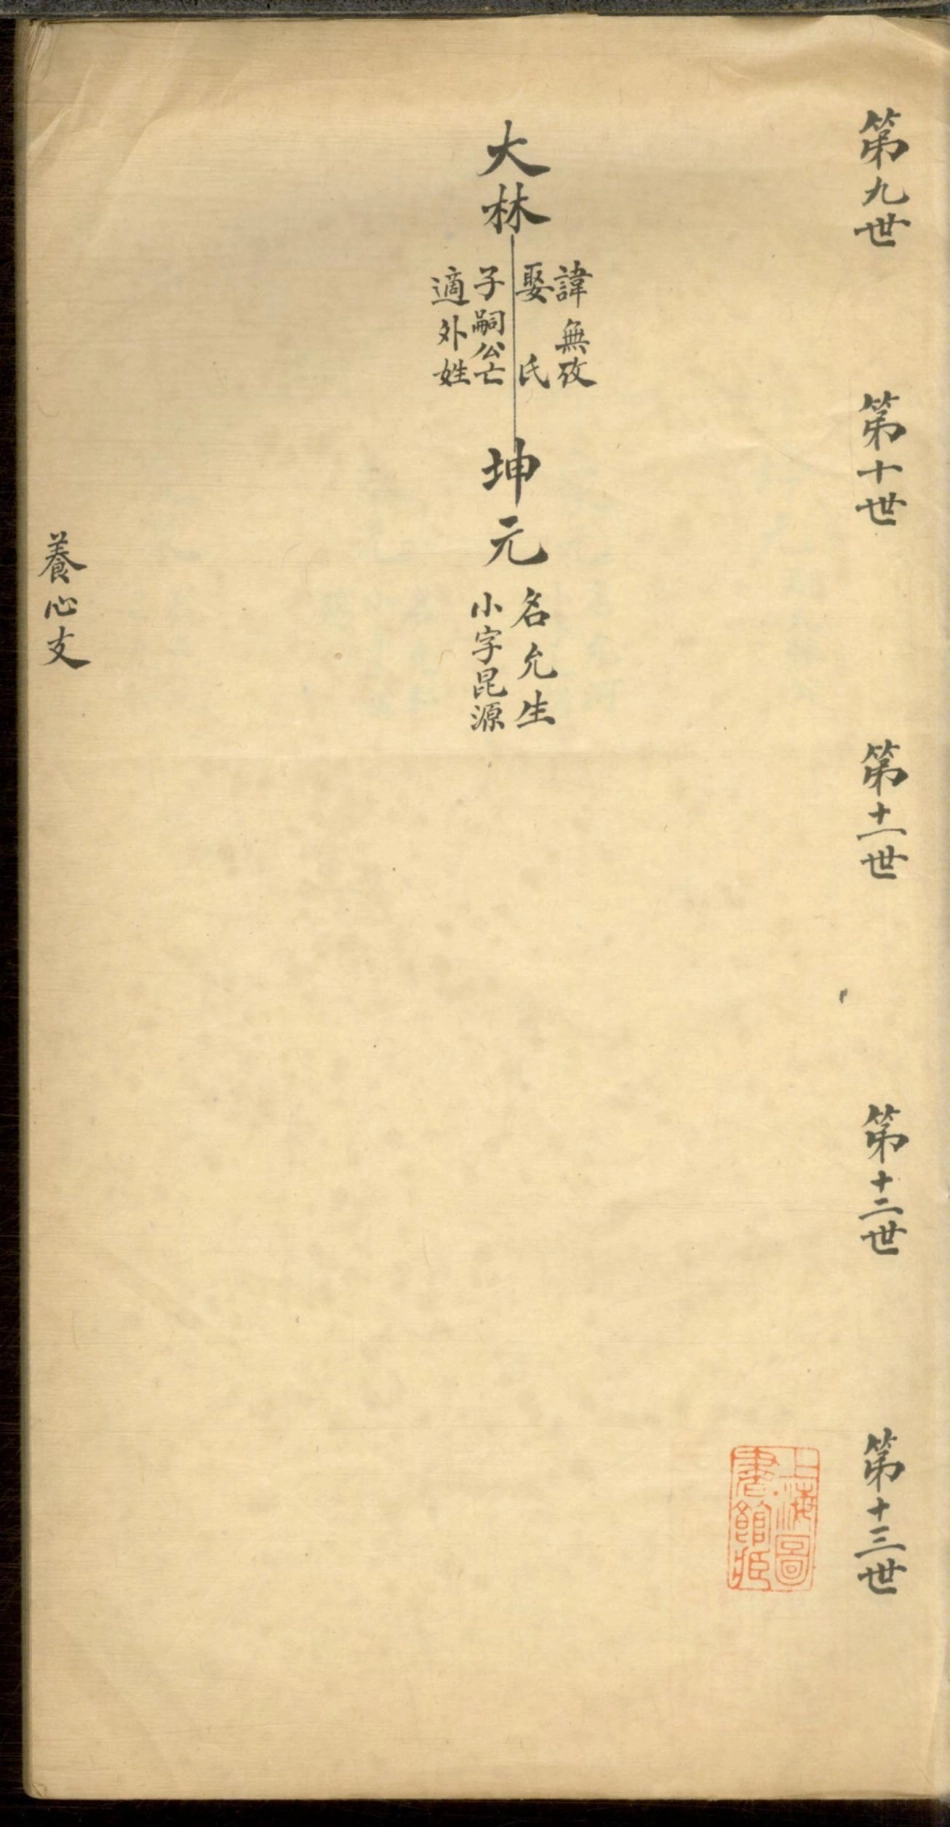 第九世
第十世
第十一世
第十二世
第十三世
大林
諱無攷
娶 氏
子嗣公亡
適外姓
坤元
名允生
小字昆源
養心支
上海圖
書館藏